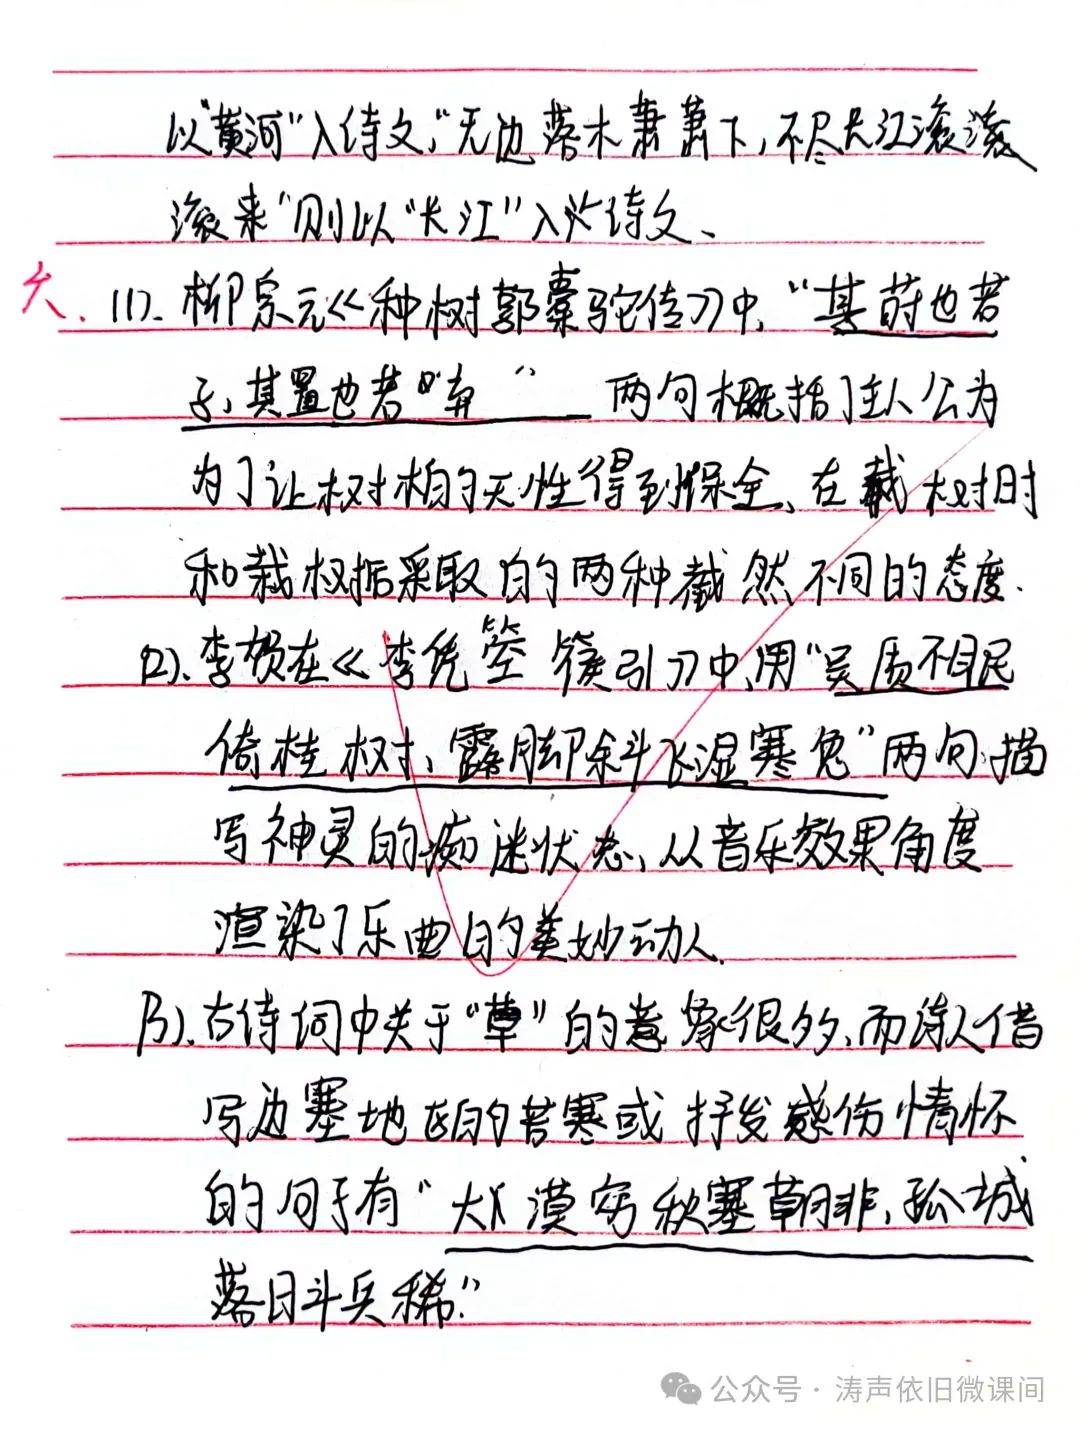 以“黄河”入诗文，“无边落木萧萧下，不尽长江滚滚
滚来”则以“长江”入诗文、
六、(1)、柳宗元《种树郭橐驼传》中，“其莳也若
子，其置也若弃” 两句概括了主人公为
为了让树木的天性得到保全、在栽树时
和栽树后采取的两种截然不同的态度.
(2)、李贺在《李凭箜篌引》中，用“吴质不眠
倚桂树，露脚斜飞湿寒兔”两句，描
写神灵的痴迷状态，从音乐效果角度
渲染了乐曲的美妙动人.
(3)、古诗词中关于“草”的意象很多，而诗人借
写边塞地区的苦寒或抒发感伤情怀
的句子有“大漠穷秋塞草腓，孤城
落日斗兵稀.”
公众号·涛声依旧微课间